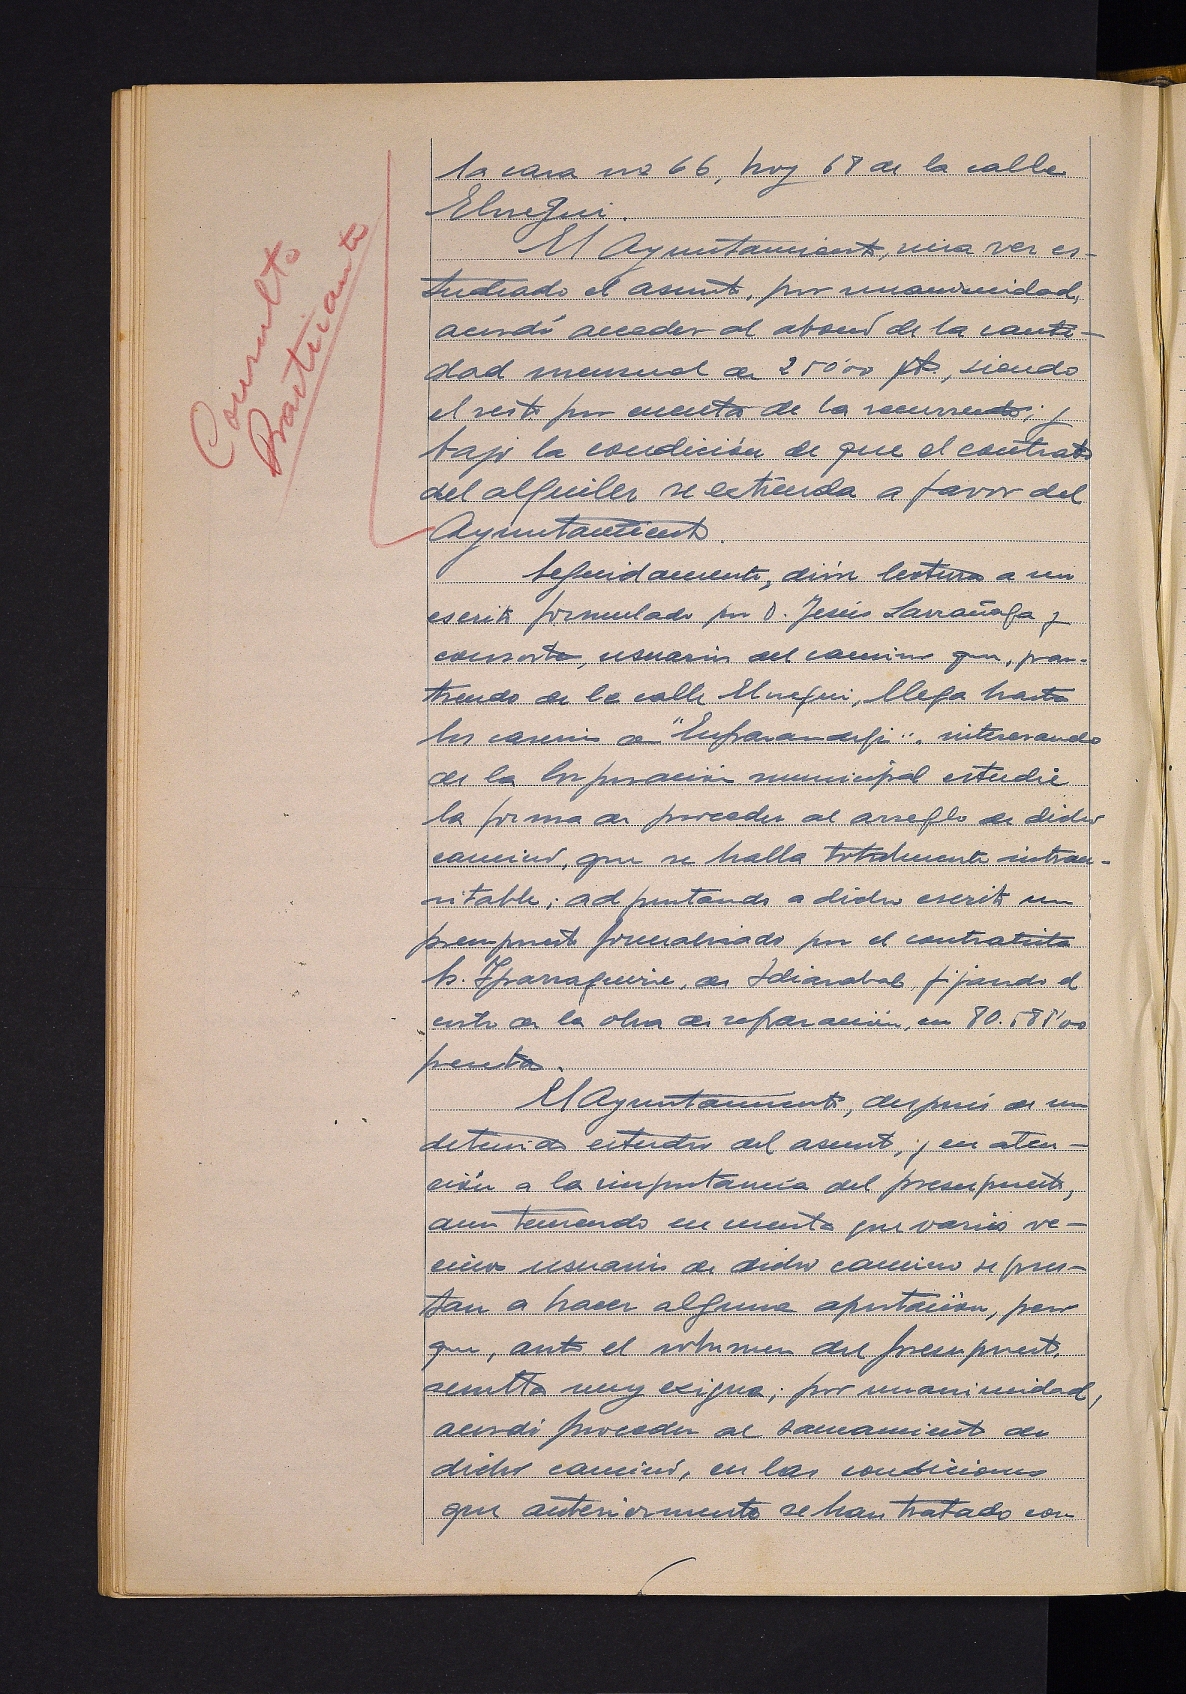 Consulto
Practicante
la casa nº 66, hoy 68 de la calle
Elusegui.
El Ayuntamiento, una vez es-
tudiado el asunto, por unanimidad,
acordó acceder al abono de la canti-
dad mensual de 250'00 pts., siendo
el resto por cuenta de la recurrente; y
bajo la condición de que el contrato
del alquiler se extienda a favor del
Ayuntamiento.
Seguidamente, dióse lectura a un
escrito formulado por D. Jesús Larrañaga y
consorte, usuarios del camino que, par-
tiendo de la calle Elusegui, llega hasta
los caserios de interesando
de la Corporación municipal estudie
la forma de proceder al arreglo de dicho
camino, que se halla totalmente intran-
sitable; adjuntando a dicho escrito un
presupuesto formalizado por el contratista
Sr. Iparraguirre, de Idiazabal, fijando el
costo de la obra de reparación, en
pesetas.
El Ayuntamiento, después de un
detenido estudio del asunto, y en aten-
ción a la importancia del presupuesto,
aun teniendo en cuenta que varios ve-
cinos usuarios de dicho camino se pres-
tan a hacer alguna aportación, pero
que, ante el volumen del presupuesto,
resulta muy exigua; por unanimidad,
acordó proceder al saneamiento de
dicho camino, en las condiciones
que anteriormente se han tratado con